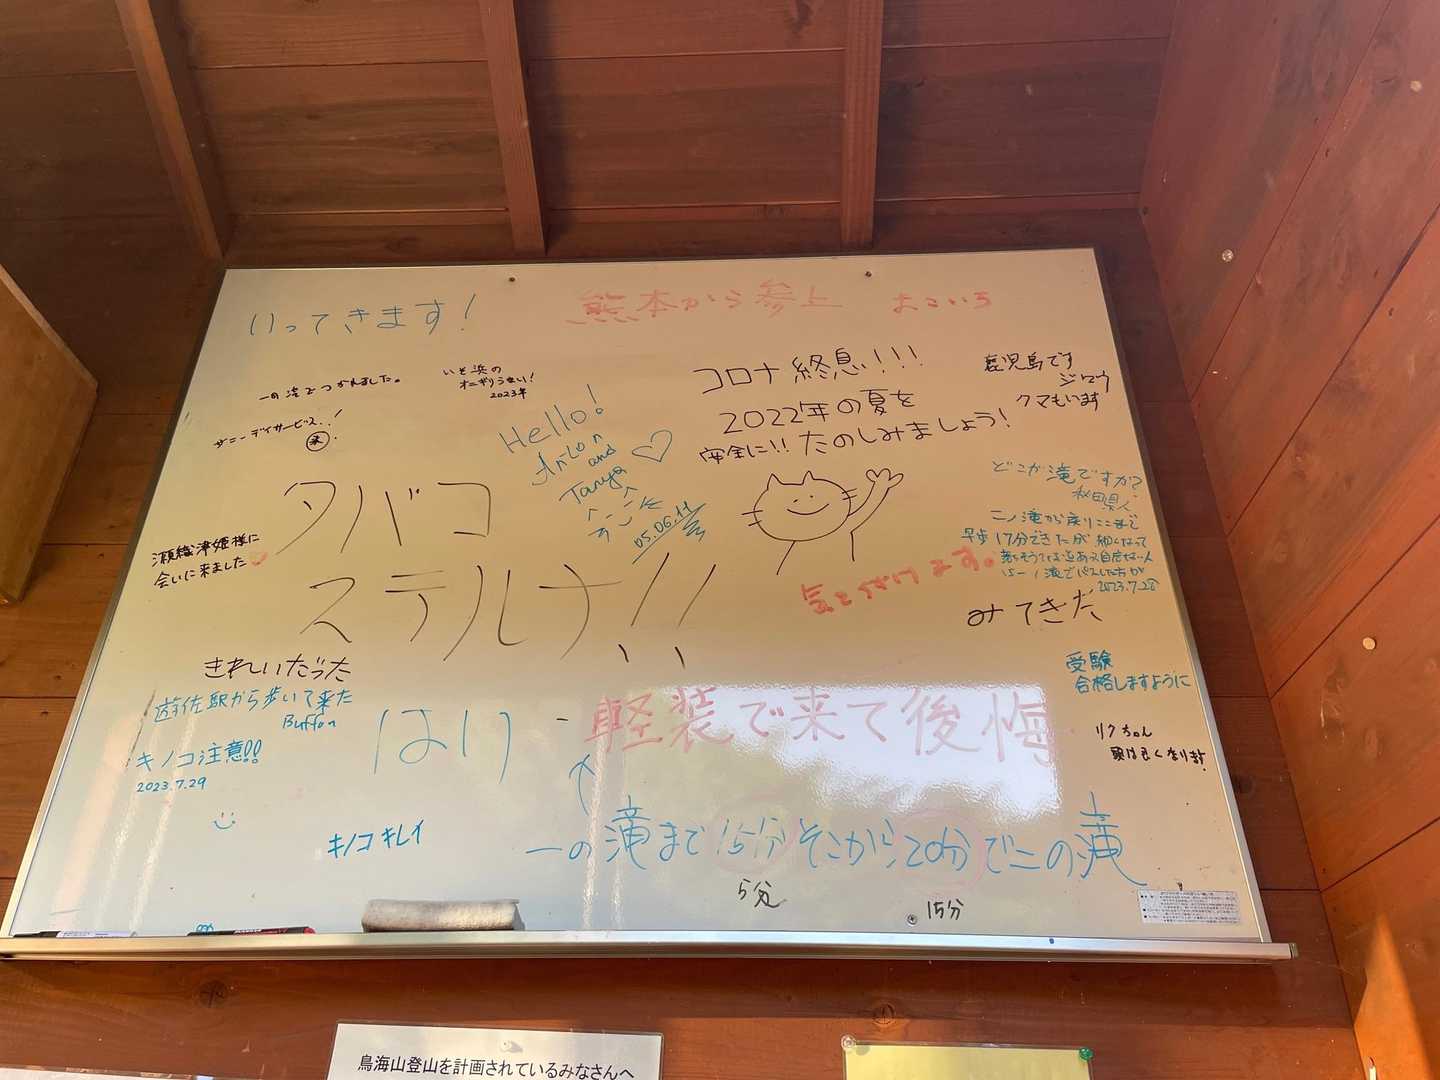 いってきます!
熊本から参上
一の滝でつかれました。
オニギリうまい!
2023年
サニーデイサービス!
Hello!
Anton
and
Tanya
05.06.11
コロナ終息!!!
2022年の夏を
安全に!!たのしみましょう!
鹿児島です
ジロウ
クマもいます
タバコ
ステルナ!!
瀬織津姫様に
会いに来ました
どこが滝ですか?
秋田県人
二ノ滝から戻りここまで
早歩17分できたが細くなって
2023.7.28
みてきた
気をつけます。
きれいだった
遊佐駅から歩いて来た
Buffon
キノコ注意!!
2023.7.29
はい
軽装で来て後悔
受験
合格しますように
リクちゃん
頭は良くなります
キノコキレイ
一の滝まで15分そこから20分で二の滝
5分
15分
鳥海山登山を計画されているみなさんへ